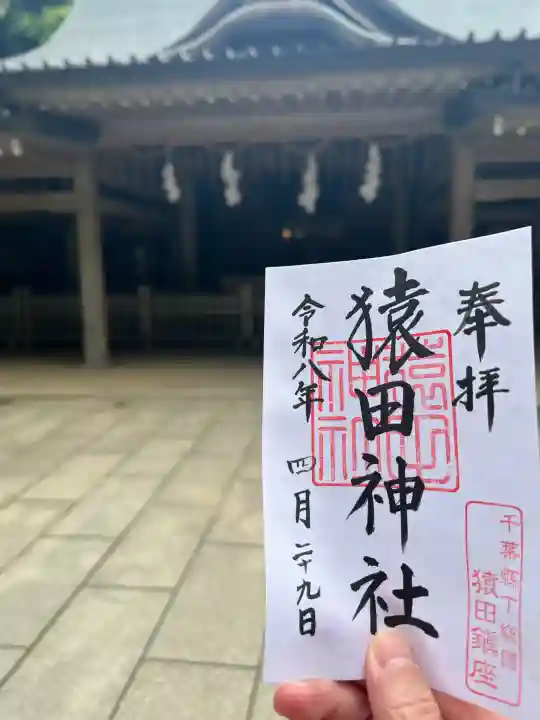 奉拝
猿田神社
令和八年 四月二十九日
千葉縣下総國
猿田鎮座